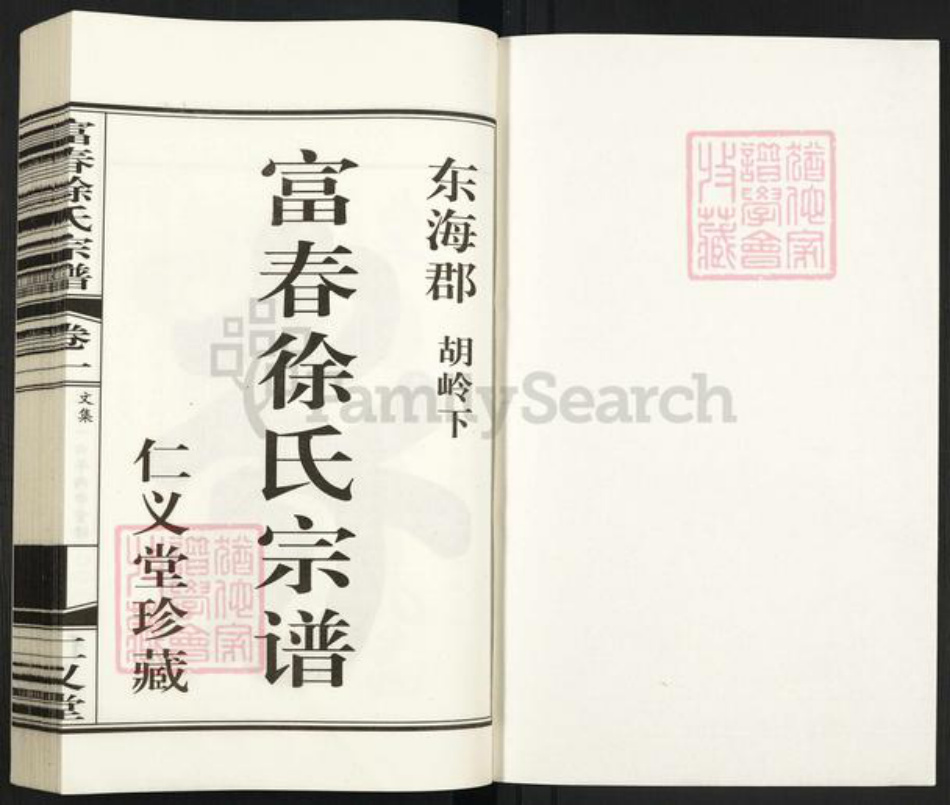 东海郡 胡岭下
富春徐氏宗谱
仁义堂珍藏
富春徐氏宗谱
卷一
文集
仁义堂
猶他家
譜學會
收藏
猶他家
譜學會
收藏
FamilySearch